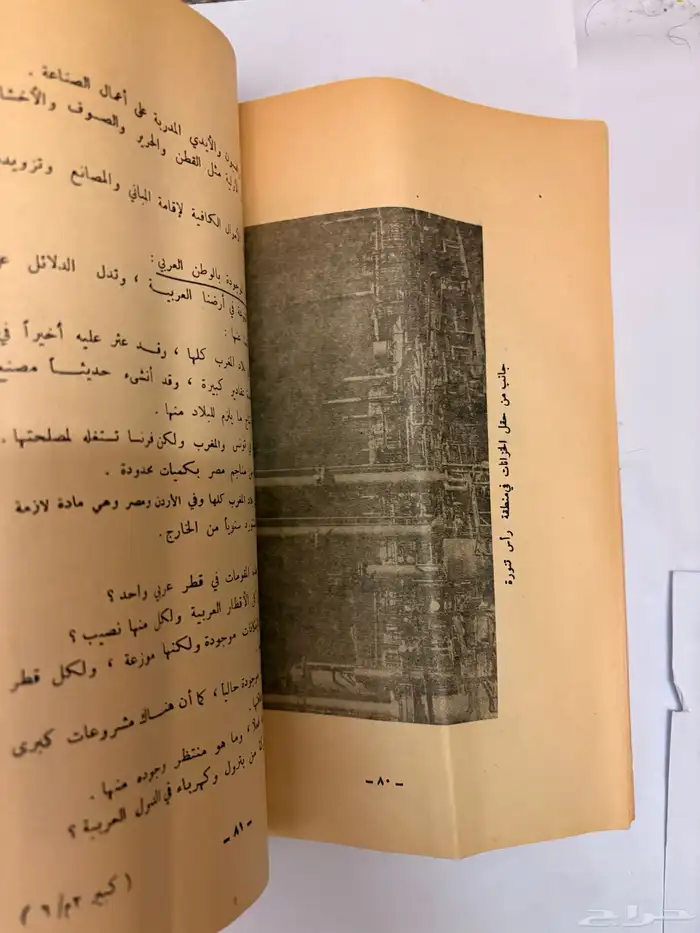 جانب من حقل الخزانات في منطقة رأس تنورة
- ٨٠ -
والأيدي المدربة على أعمال الصناعة .
مثل القطن والحرير والصوف والأخشا
الأموال الكافية لإقامة المباني والمصانع وتزويد
موجودة بالوطن العربي :
في أرضنا العربية ، وتدل الدلائل
منها :
بلاد المغرب كلها ، وقد عثر عليه أخيراً في
كبيرة ، وقد أنشىء حديثاً مصنع
ما يلزم للبلاد منها .
تونس والمغرب ولكن فرنسا تستغله لمصلحتها .
مناجم مصر بكميات محدودة .
المغرب كلها وفي الأردن ومصر وهي مادة لازمة
سنوياً من الخارج .
المقومات في قطر عربي واحد ؟
الأقطار العربية ولكل منها نصيب ؟
موجودة ولكنها موزعة ، ولكل قطر
موجودة حالياً ، كما أن هناك مشروعات كبرى
، وما هو منتظر وجوده منها .
من بترول وكهرباء في الدول العربية ؟
- ٨١ -
( كبير ٢م/٦ )
حراج